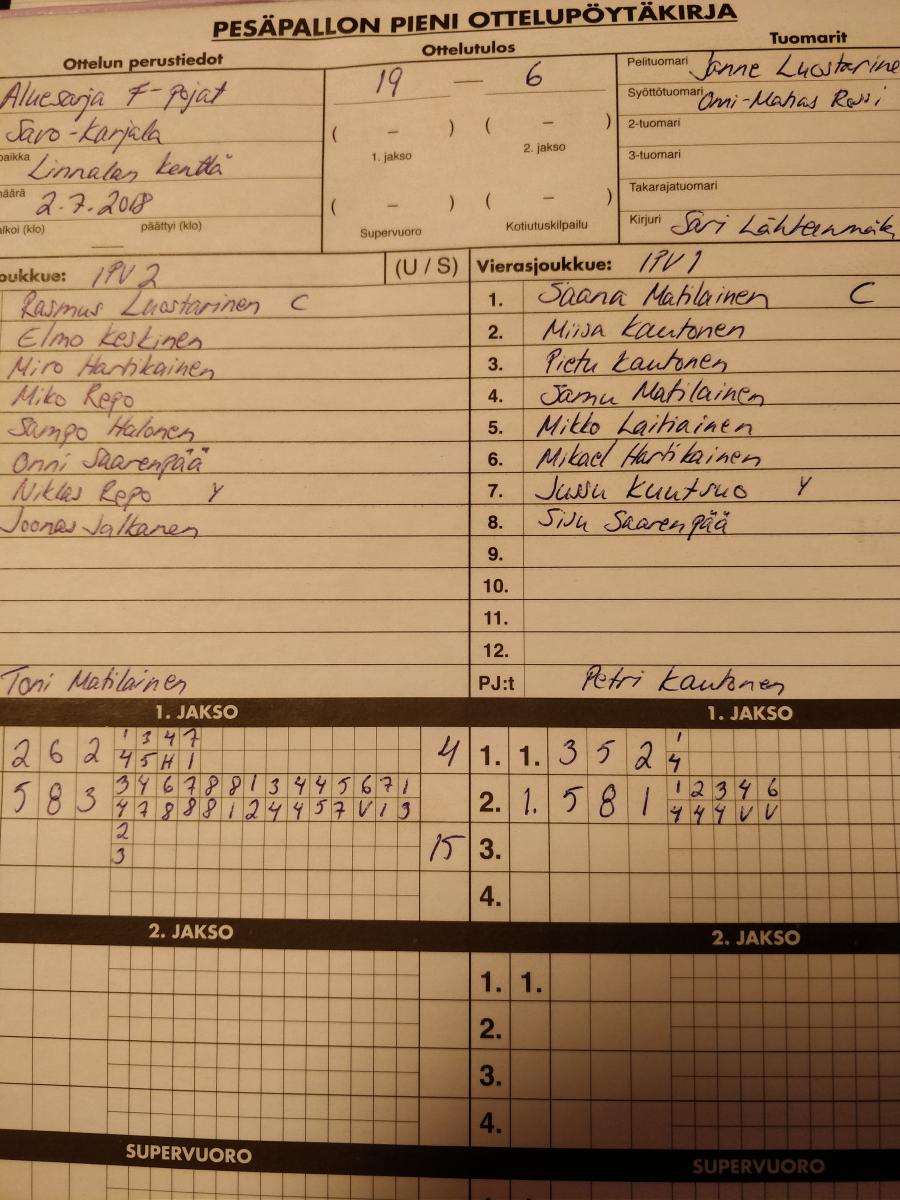 PESÄPALLON PIENI OTTELUPÖYTÄKIRJA
Ottelun perustiedot
Aluesarja F-pojat
Savo-Karjala
paikka Linnalan kenttä
määrä 2.7.2018
alkoi (klo) päättyi (klo)
Ottelutulos
19 — 6
( – ) ( – )
1. jakso 2. jakso
( – ) ( – )
Supervuoro Kotiutuskilpailu
Tuomarit
Pelituomari Janne Luostarine
Syöttötuomari Onni-Matias Rossi
2-tuomari
3-tuomari
Takarajatuomari
Kirjuri Sari Lähteenmäk
oukkue: IPV 2 (U / S)
Rasmus Luostarinen C
Elmo Keskinen
Miro Hartikainen
Miko Repo
Sampo Halonen
Onni Saarenpää
Niklas Repo Y
Joonas Jalkanen
Toni Matilainen
Vierasjoukkue: IPV 1
1. Saana Matilainen C
2. Miisa Kautonen
3. Pietu Kautonen
4. Samu Matilainen
5. Mikko Laitiainen
6. Mikael Hartikainen
7. Jussu Kuutsuo Y
8. Sisu Saarenpää
9.
10.
11.
12.
PJ:t Petri Kautonen
1. JAKSO
1 3 4 7
2 6 2 4 5 H 1 4
3 4 6 7 8 8 1 3 4 4 5 6 7 1
5 8 3 4 7 8 8 8 1 2 4 4 5 7 V 1 3
2
3 15
1. JAKSO
1
1. 1. 3 5 2 4
1 2 3 4 6
2. 1. 5 8 1 4 4 4 V V
3.
4.
2. JAKSO
2. JAKSO
1. 1.
2.
3.
4.
SUPERVUORO
SUPERVUORO